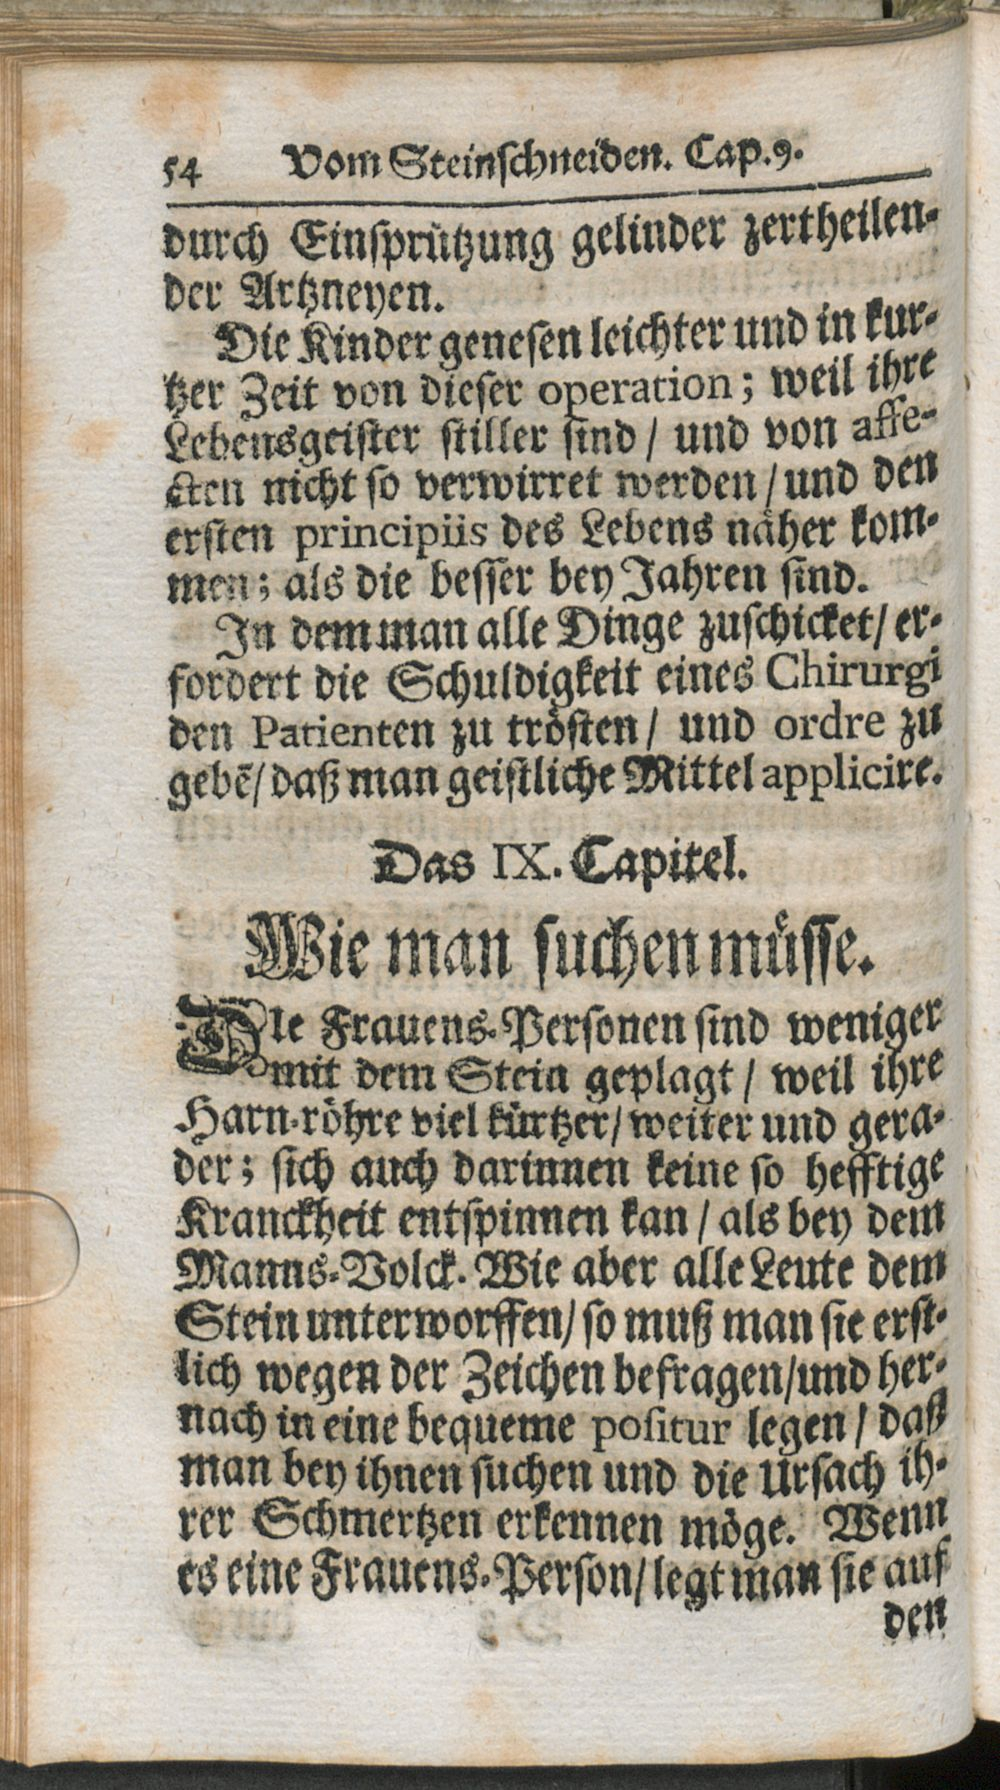 54 Vom Steinschneiden. Cap.9.
durch Einsprützung gelinder zertheilen-
der Artzneyen.
Die Kinder genesen leichter und in kur-
tzer Zeit von dieser operation; weil ihre
Lebensgeister stiller sind / und von affe-
cten nicht so verwirret werden / und den
ersten principiis des Lebens näher kom-
men; als die besser bey Jahren sind.
In dem man alle Dinge zuschicket / er-
fordert die Schuldigkeit eines Chirurgi
den Patienten zu trösten / und ordre zu
gebē / daß man geistliche Mittel applicire.
Das IX. Capitel.
Wie man suchen müsse.
DIe Frauens-Personen sind weniger
mit dem Stein geplagt / weil ihre
Harn-röhre viel kürtzer / weiter und gera-
der; sich auch darinnen keine so hefftige
Kranckheit entspinnen kan / als bey dem
Manns-Volck. Wie aber alle Leute dem
Stein unterworffen / so muß man sie erst-
lich wegen der Zeichen befragen / und her-
nach in eine bequeme positur legen / daß
man bey ihnen suchen und die Ursach ih-
rer Schmertzen erkennen möge. Wenn
es eine Frauens-Person / legt man sie auf
den